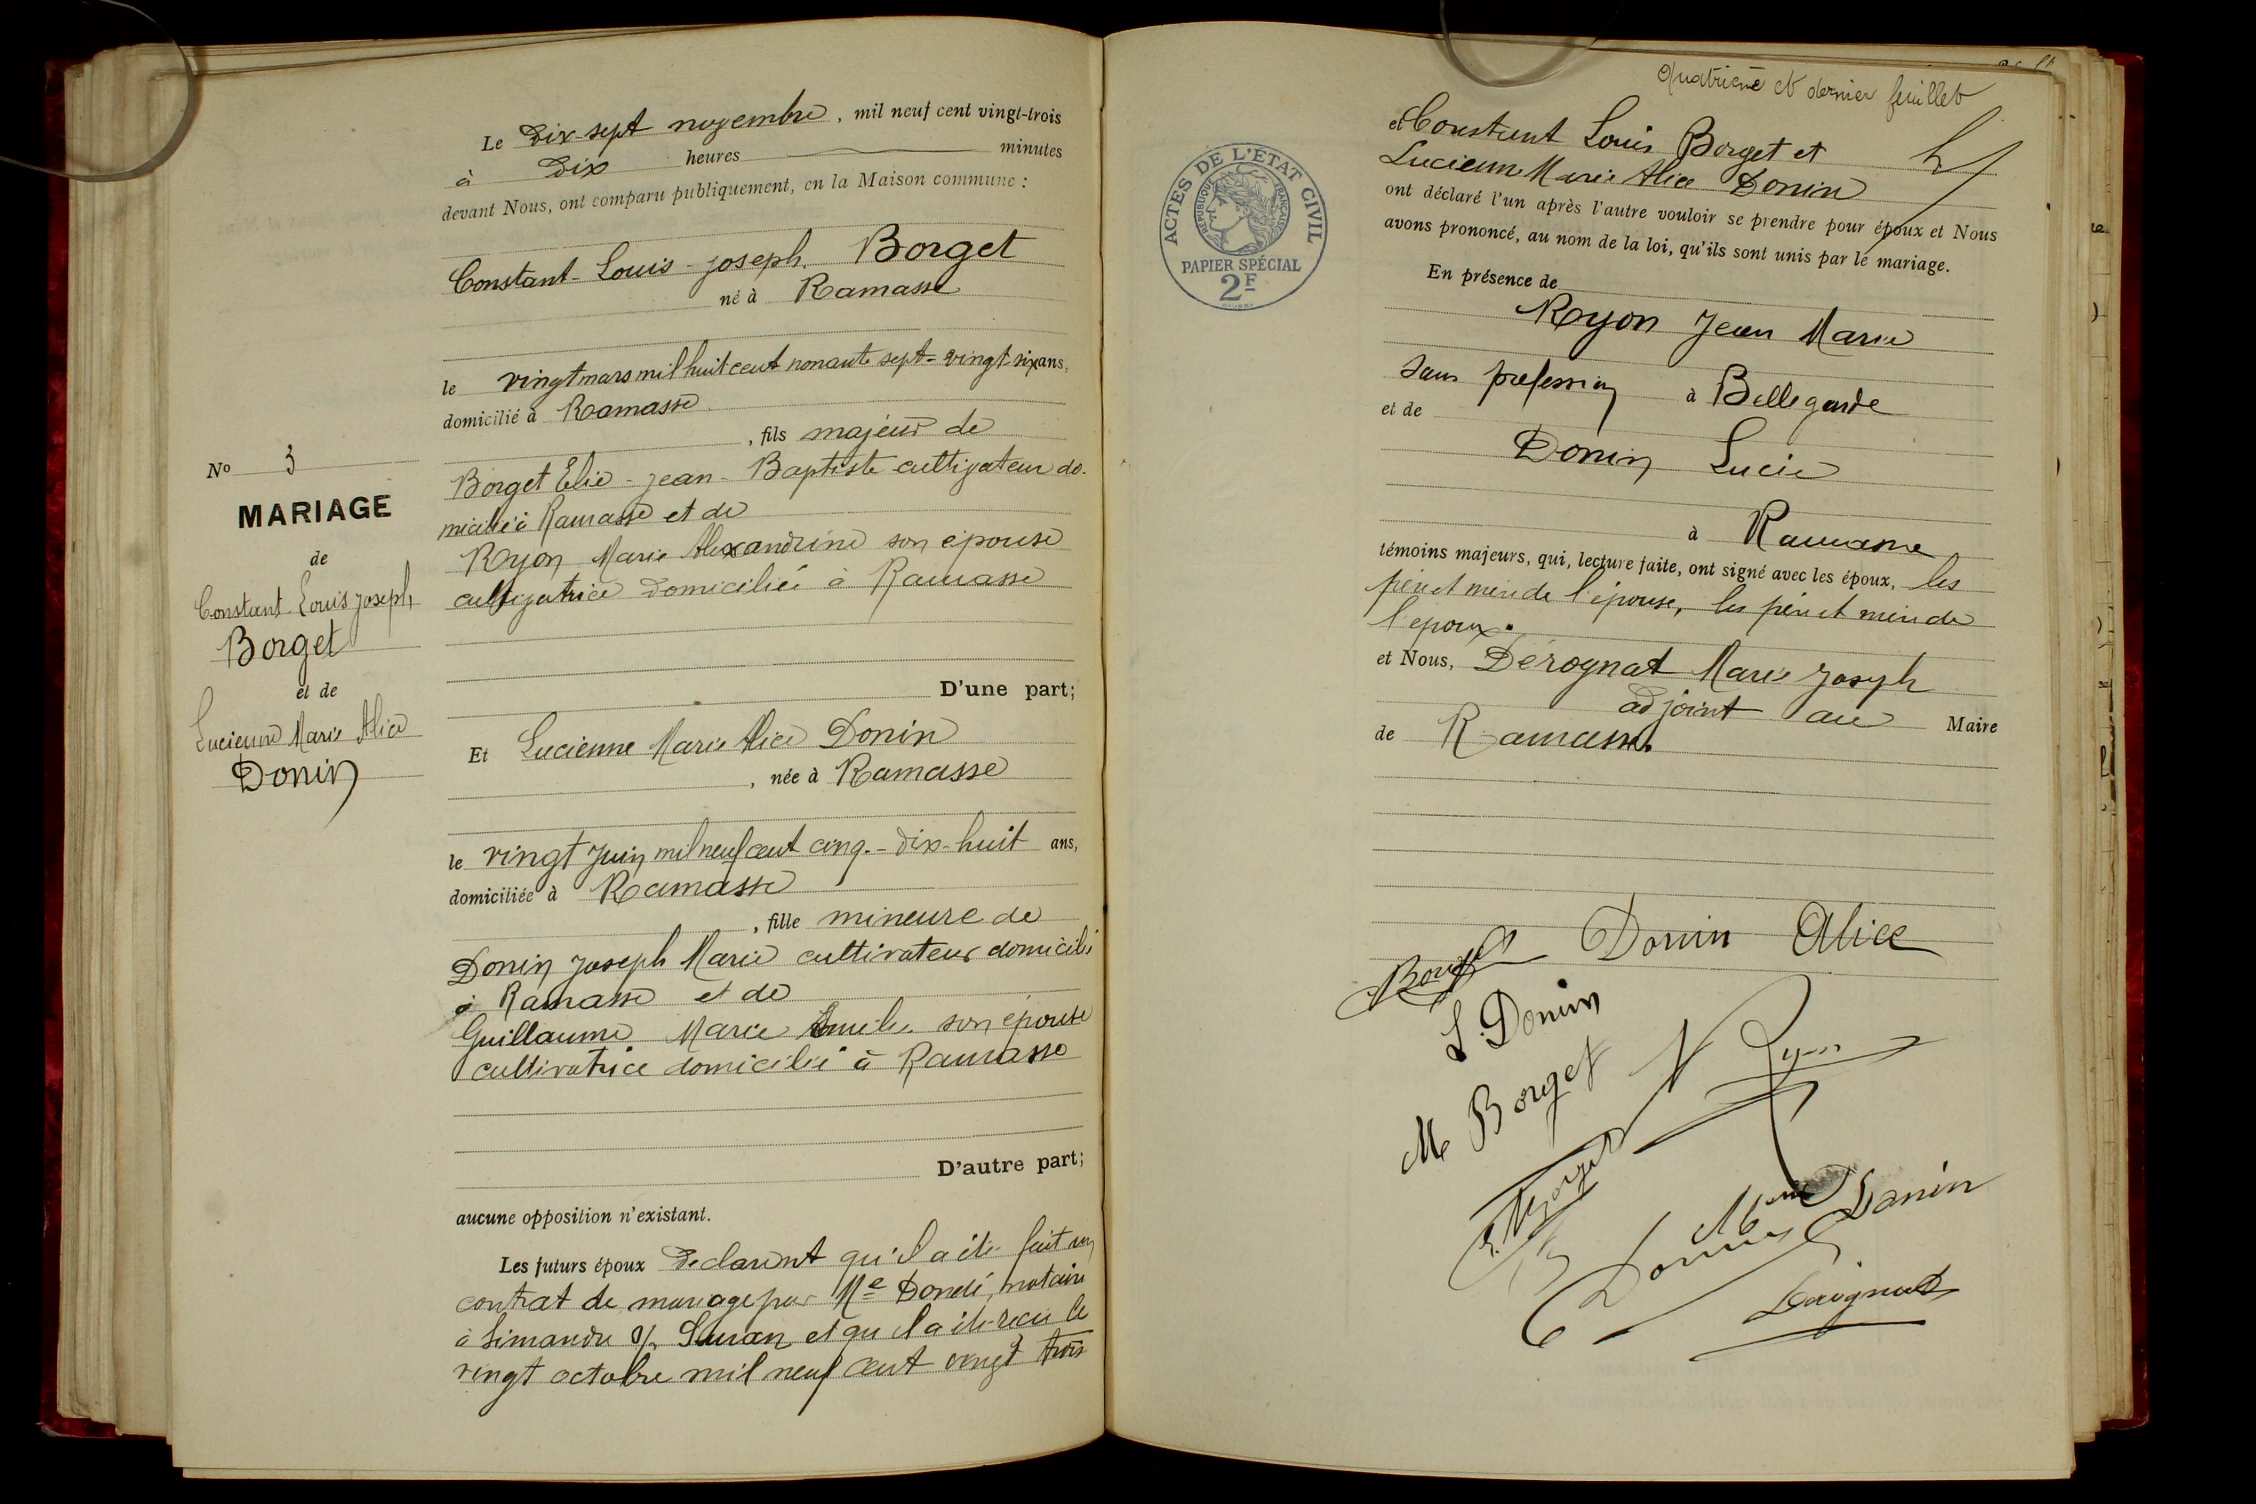 Le Dix-sept novembre, mil neuf cent vingt-trois
à Dix heures minutes
devant Nous, ont comparu publiquement, en la Maison commune :
Constant-Louis-Joseph Borget
né à Ramasse
le vingt mars mil huit cent nonante sept = vingt-six ans,
domicilié à Ramasse
, fils majeur de
Borget Elie-Jean-Baptiste cultivateur do-
micilié à Ramasse et de
Royon Marie Alexandrine son épouse
cultivatrice domiciliée à Ramasse
D'une part;
Nº 3
MARIAGE
de
Constant-Louis Joseph
Borget
et de
Lucienne Marie Alice
Donin
Et Lucienne Marie Alice Donin
, née à Ramasse
le vingt Juin mil neuf cent cinq.- dix-huit ans,
domiciliée à Ramasse
, fille mineure de
Donin Joseph Marie cultivateur domicilié
à Ramasse et de
Guillaume Marie Emilie son épouse
cultivatrice domiciliée à Ramasse
D'autre part;
aucune opposition n'existant.
Les futurs époux déclarent qu'il a été fait un
contrat de mariage par Me Dondé, notaire
à Simandre s/ Suran et qu'il a été reçu le
vingt octobre mil neuf cent vingt trois
quatrième et dernier feuillet
ACTES DE L'ETAT CIVIL
REPUBLIQUE FRANÇAISE
PAPIER SPÉCIAL
2F
et Constant Louis Borget et
Lucienne Marie Alice Donin
ont déclaré l'un après l'autre vouloir se prendre pour époux et Nous
avons prononcé, au nom de la loi, qu'ils sont unis par le mariage.
En présence de
Royon Jean Marie
sans profession à Bellegarde
et de
Donin Lucie
à Ramasse
témoins majeurs, qui, lecture faite, ont signé avec les époux, les
père et mère de l'épouse, les père et mère de
l'époux.
et Nous, Dérognat Marie Joseph
adjoint au Maire
de Ramasse.
Borget Donin Alice
L. Donin
M Borget
E. Borget
Marie Donin
Donin